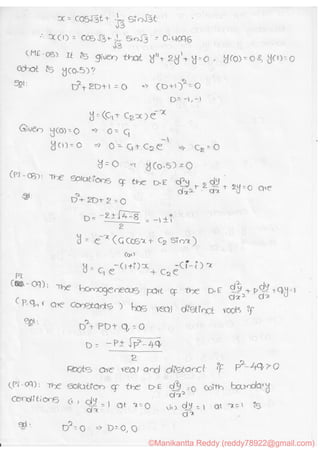 x = cos√3t + 1/√3 sin√3t
∴ x(1) = cos√3 + 1/√3 sin√3 = 0.4096
(ME-08) It is given that y" + 2y' + y = 0, y(0)=0 & y(1)=0
what is y(0.5)?
Sol: D²+2D+1 = 0 ⇒ (D+1)²=0
D = -1, -1
y = (C₁ + C₂x) e⁻ˣ
Given y(0)=0 ⇒ 0 = C₁
y(1)=0 ⇒ 0 = C₁ + C₂e⁻¹ ⇒ C₂ = 0
y = 0 ⇒ y(0.5)=0
(PI-08): The solutions of the D.E d²y/dx² + 2 dy/dx + 2y = 0 are
Sol: D²+2D+2 = 0
D = -2±√4-8 / 2 = -1±i
y = e⁻ˣ (C₁cosx + C₂ sinx)
(or)
y = C₁ e^-(1+i)x + C₂ e^-(1-i)x
PI
(-09): The homogeneous part of the D.E d²y/dx² + p dy/dx + qy = r
(p, q, r are constants) has real distinct roots if
Sol: D² + PD + q = 0
D = -P ± √P²-4q / 2
Roots are real and distanct if P²-4q > 0
(PI-09): The solution of the D.E d²y/dx² = 0 with boundary
conditions (i) dy/dx = 1 at x=0 (ii) dy/dx = 1 at x=1 is
Sol: D² = 0 ⇒ D = 0, 0
©Manikantta Reddy (reddy78922@gmail.com)